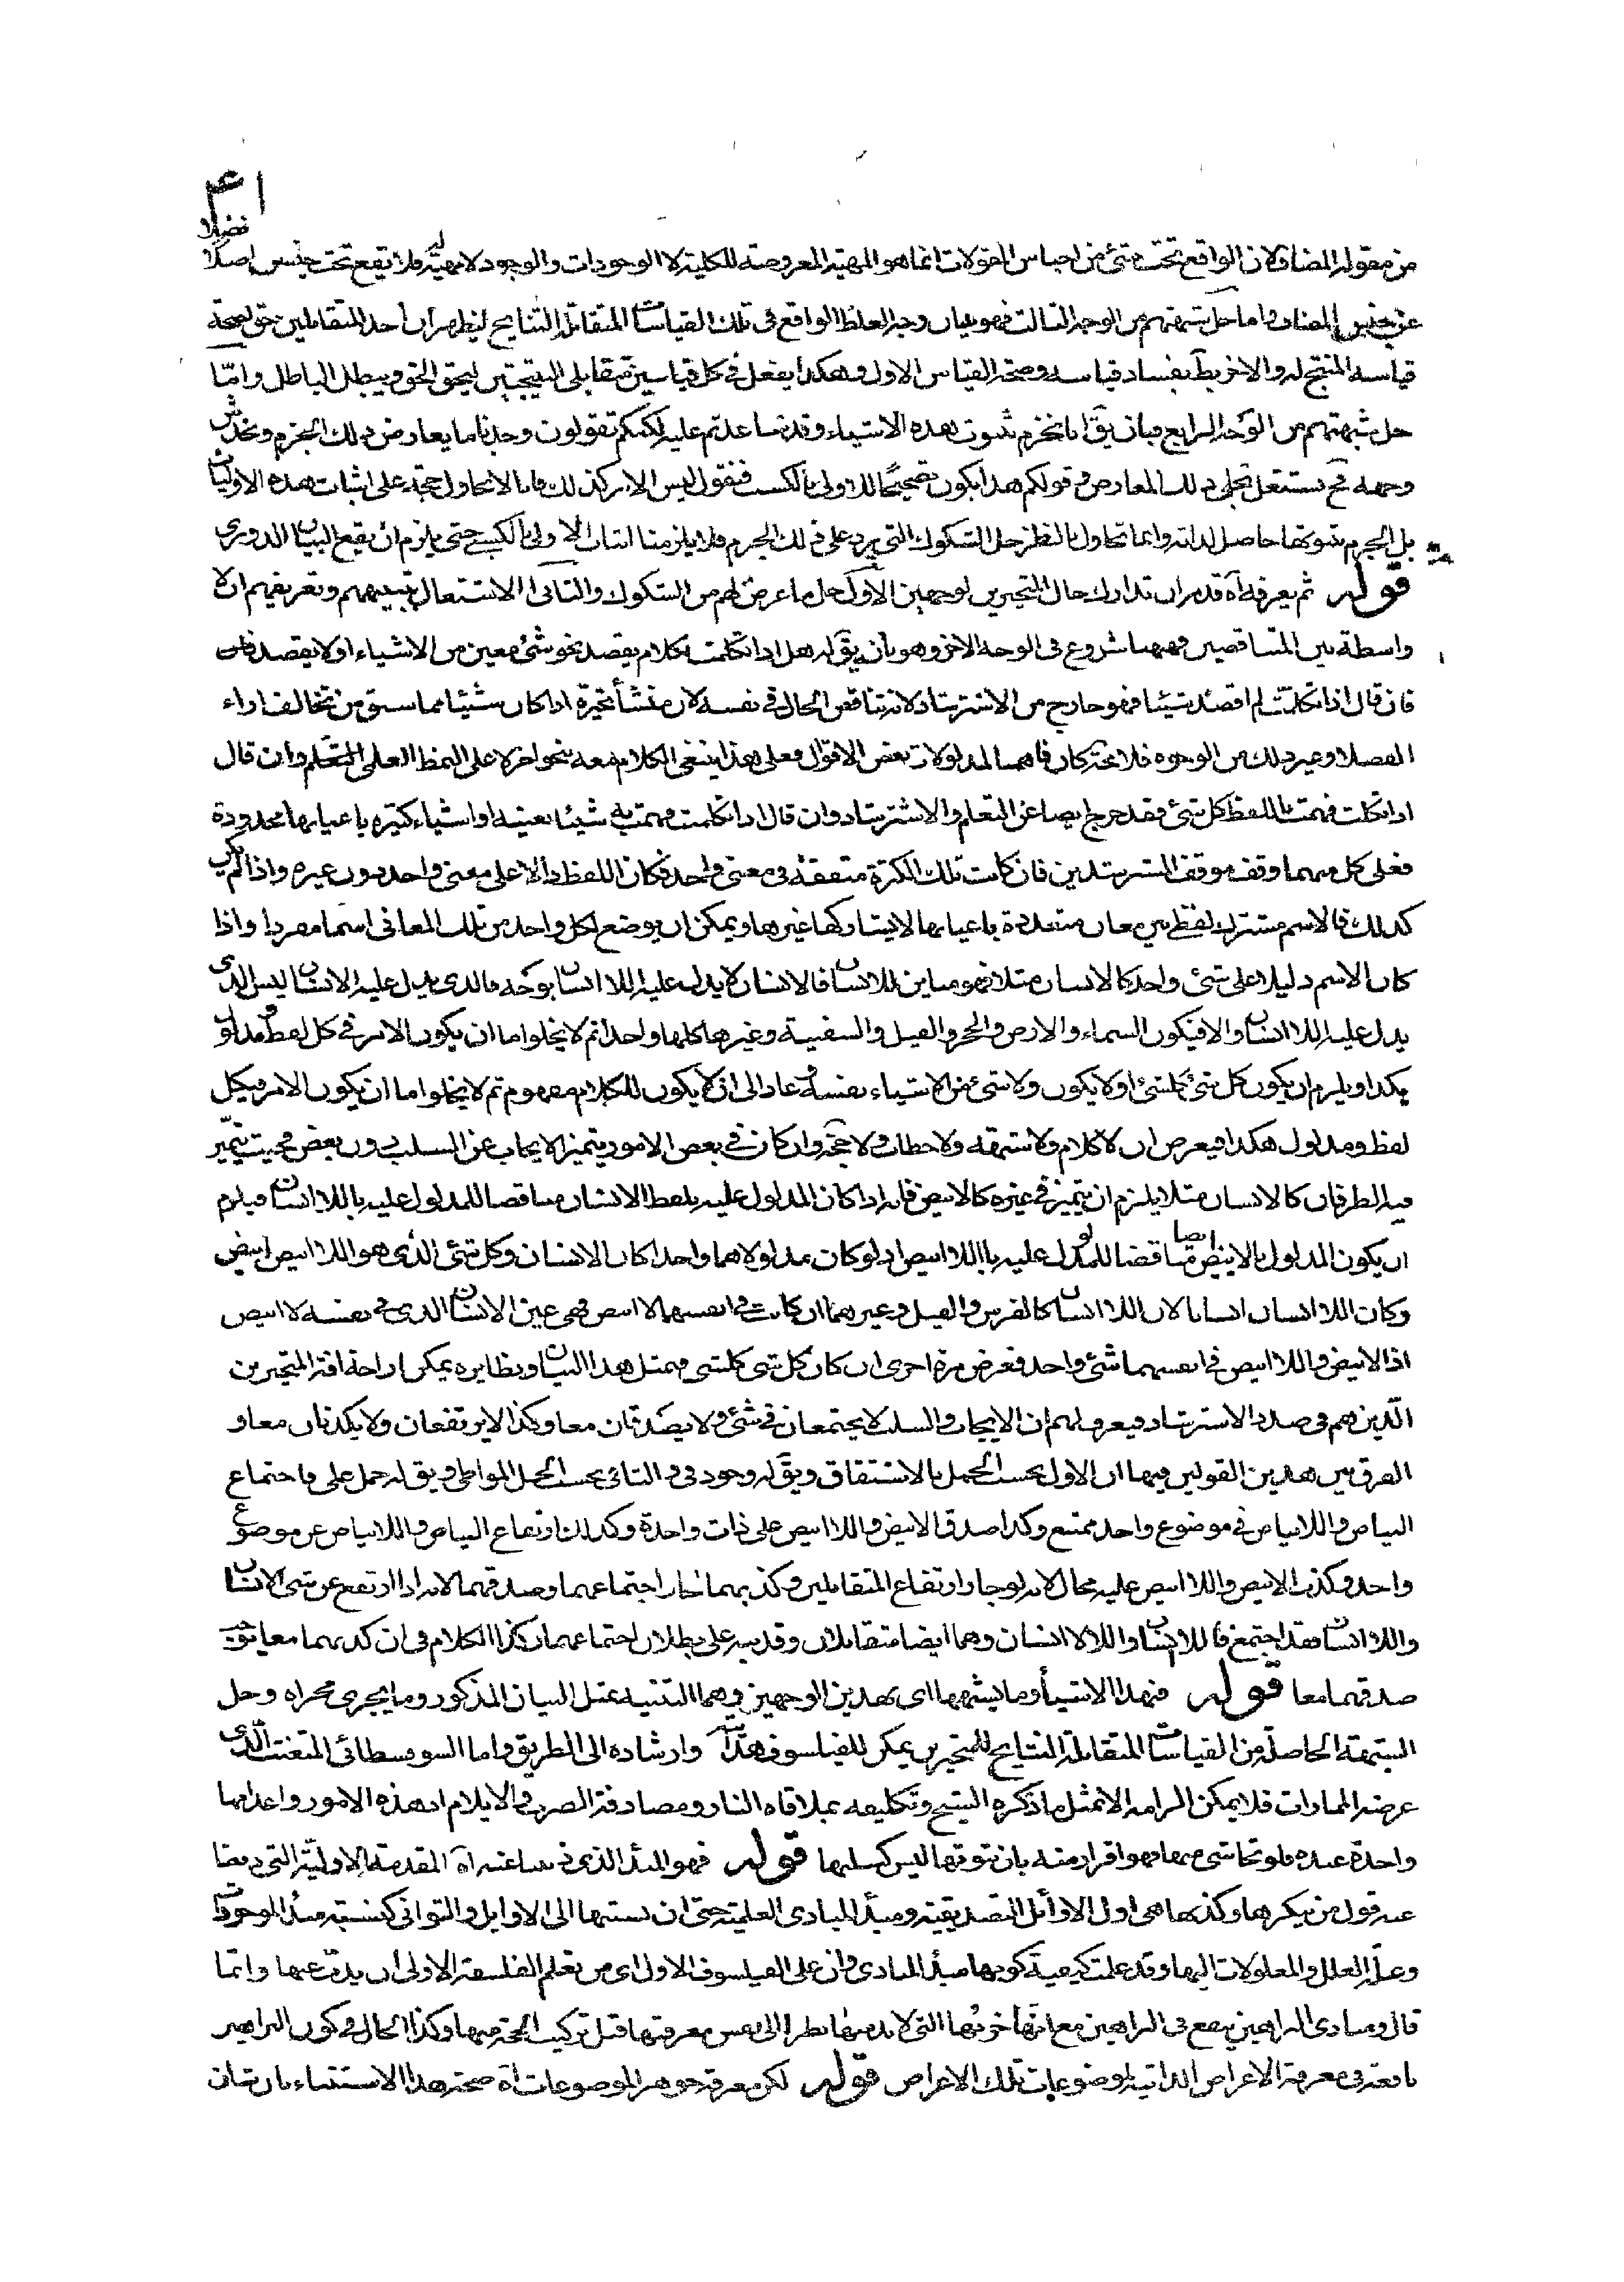 ٤١
فضلا
من مقولة المضاف لان الواقع تحت شئ من اجناس المقولات انما هو المهية المعروضة للكلية لا الوجودات والوجود لا مهية له فلا يقع تحت جنس اصلا
عن جنس المضاف واما حل شبهتهم من الوجه الثالث فهو ببيان وجه الغلط الواقع فى تلك القياسات المتقابلة النتايج ليظهر ان احد المتقابلين حق لصحة
قياسه المنتج له والاخر بط بفساد قياسه وصحة القياس الاول وهكذا يفعل فى كل قياسين متقابلى النتيجتين ليحق الحق ويبطل الباطل وامّا
حل شبهتهم من الوجه الرابع فبان يقّ انا نجزم بثبوت هذه الاشياء وقد ساعدتم عليه لكنكم تقولون وجدنا ما يعارض ذلك الجزم ويخدش
وجهه فح نستغل بحل ذلك المعارض وقولكم هذا يكون تصحيحًا للاولى بالكسب فنقول ليس الامر كذلك فانا لا نحاول حجة على اثبات هذه الاوليات
بل الجزم بثبوتها حاصل لذاته وانما نحاول بالنظر حل الشكوك التى يرد على ذلك الجزم فلا يلزمنا اثبات الاولى بالكسب حتى يلزم ان يقع البيان الدورى
قوله ثم يعرفه آه قد مر ان تدارك حال المتحيرين لوجهين الاول حل ما عرض لهم من الشكوك والثانى الاشتغال بتنبيههم وتعريفهم ان لا
واسطة بين المتناقضين فههنا شروع فى الوجه الاخر وهو بان يقّ له هل اذا تكلمت بكلام يقصد نحو شئ معين من الاشياء او لا يقصد فان
فان قال اذا تكلمت لم اقصد شيئا فهو خارج من الاسترشاد لانه يتناقض الحال فى نفسه لان منشأ تحيّره اذا كان شيئا مما سبق من تخالف اراء
الفضلا وغير ذلك من الوجوه فلا محة كان فاهما لمدلولات بعض الاقوال فعلى هذا ينبغى الكلام معه بنحو اخر لا على النمط العلمى التعلم وان قال
اذا تكلمت فهمت باللفظ كل شئ فقد خرج ايضا عن التعلم والاسترشاد وان قال اذا تكلمت فهمت به شيئا بعينه او اشياء كثيره باعيانها محدودة
فعلى كل منهما وقف موقف المسترشدين فان كانت تلك الكثرة متفقة فى معنى واحد فكان اللفظ دالا على معنى واحد دون غيره واذا لم يكن
كذلك فالاسم مشترك لفظ بين معان متعددة باعيانها لا يشاركها غيرها ويمكن ان يوضع لكل واحد من تلك المعانى اسما مفردا واذا
كان الاسم دليلا على شئ واحد كالانسان مثلا فهو مباين للاانسان فالانسان لا يدل عليه اللاانسان بوجه فالذى يدل عليه الانسان ليس الذى
يدل عليه اللاانسان والا فيكون السماء والارض والحجر والفيل والسفينة وغيرها كلها واحدا ثم لا يخلوا اما ان يكون الامر فى كل لفظ ومدلول
هكذا ويلزم ان يكون كل شئ كلشئ او لا يكون ولا شئ من الاشياء نفسه وعاد الى ان لا يكون للكلام مفهوم ثم لا يخلوا اما ان يكون الامر فى كل
لفظ ومدلول هكذا فيعرض ان لا كلام ولا شبهة ولا خطاب ولا حجة وان كان فى بعض الامور يتميز الايجاب عن السلب دون بعض فحيث يتميّر
فيه الطرفان كالانسان مثلا يلزم ان يتميز فى غيره كالابيض فانه اذا كان المدلول عليه بلفظ الانسان مناقضا للمدلول عليه باللاانسان فيلزم
ان يكون المدلول بالابيض ايضا مناقضا للمدلول عليه باللاابيض اذ لو كان مدلولاهما واحدا كان الانسان وكل شئ الذى هو اللاابيض ابيض
وكان اللاانسان انسانا لان اللاانسان كالفرس والفيل وغيرهما ان كانت فى انفسها لا ابيض فهى عين الانسان الذى فى نفسه لا ابيض
اذ الابيض واللاابيض فى انفسهما شئ واحد فعرض مرة اخرى ان كان كل شى كلشى فبمثل هذا البيان ونظايره يمكن ازاحة افة المتحيرين
الّذين هم فى صدد الاسترشاد فيعرف لهم ان الايجاب والسلب لا يجتمعان فى شئ ولا يصدقان معا وكذا لا يرتفعان ولا يكذبان معا و
الفرق بين هذين القولين فيها ان الاول بحسب الحمل بالاشتقاق ويقّ له وجود فى والثانى بحسب الحمل المواطى ويق له حمل على فاجتماع
البياض واللابياض فى موضوع واحد ممتنع وكذا صدق الابيض واللاابيض على ذات واحدة وكذلك ارتفاع البياض واللابياض عن موضوع
واحد وكذب الابيض واللاابيض عليه محال لانه لو جاز ارتفاع المتقابلين وكذبهما لجاز اجتماعهما وصدقهما لانه اذا ارتفع عن شى الانسان
واللاانسان فقد اجتمع فاللاانسان واللالاانسان وهما ايضا متقابلان وقد بين على بطلان اجتماعهما وكذا الكلام فى ان كذبهما معا يوجب
صدقهما معا قوله فبهذا الاشياء وما يشبهها اى بهذين الوجهين وهما التنبيه بمثل البيان المذكور وما يجرى مجراه وحل
الشبهة الحاصلة من القياسات المتقابلة النتايج للمتحيرين يمكن للفيلسوف هداية وارشاده الى الطريق واما السوفسطائى المتعنت الذى
عرضه المماراة فلا يمكن الزامه الا بمثل ما ذكره الشيخ وتكليفه بملاقاه النار ومصادفة الضرب والايلام اذ هذه الامور واعدامها
واحدة عنده فلو تحاشى منها فهو اقرار منه بان ثبوتها ليس كسلبها قوله فهو المبدأ الذى ذببنا عنه آه المقدمة الاولية التى دفعنا
عنه قول من ينكرها وكذبها هى اول الاوائل التصديقية ومبدأ المبادى العلمية حتى ان نسبتها الى الاوايل والثوانى كنسبة مبدأ الموجودات
وعلة العلل والمعلولات اليها وقد علمت كيفية كونها مبدأ المبادى وان على الفيلسوف الاول اى من تعلم الفلسفة الاولى ان يذب عنها وانّما
قال ومبادى البراهين ينفع فى البراهين مع انها جزئها التى لا بد منها نظرا الى نفس معرفتها قبل تركيب الحجة منها وكذا الحال فى كون البراهين
نافعة فى معرفة الاعراض الذاتية لموضوعات تلك الاعراض قوله لكن معرفة جوهر الموضوعات آه صحة هذا الاستثناء بان شان